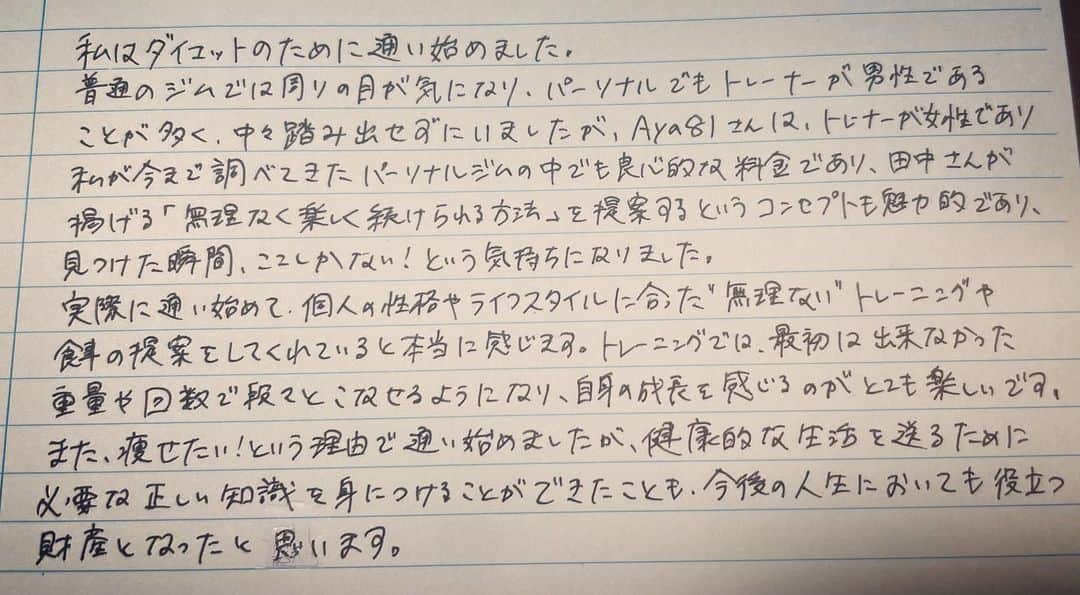 私はダイエットのために通い始めました。
普通のジムでは周りの目が気になり、パーソナルでもトレーナーが男性である
ことが多く、中々踏み出せずにいましたが、Aya81さんは、トレナーが女性であり
私が今まで調べてきたパーソナルジムの中でも良心的な料金であり、田中さんが
掲げる「無理なく楽しく続けられる方法」を提案するというコンセプトも魅力的であり、
見つけた瞬間、ここしかない!という気持ちになりました。
実際に通い始めて、個人の性格やライフスタイルに合った"無理ない"トレーニングや
食事の提案をしてくれていると本当に感じます。トレーニングでは、最初は出来なかった
重量や回数で段々とこなせるようになり、自身の成長を感じるのがとても楽しいです。
また、痩せたい!という理由で通い始めましたが、健康的な生活を送るために
必要な正しい知識を身につけることができたことも、今後の人生においても役立つ
財産となったと思います。